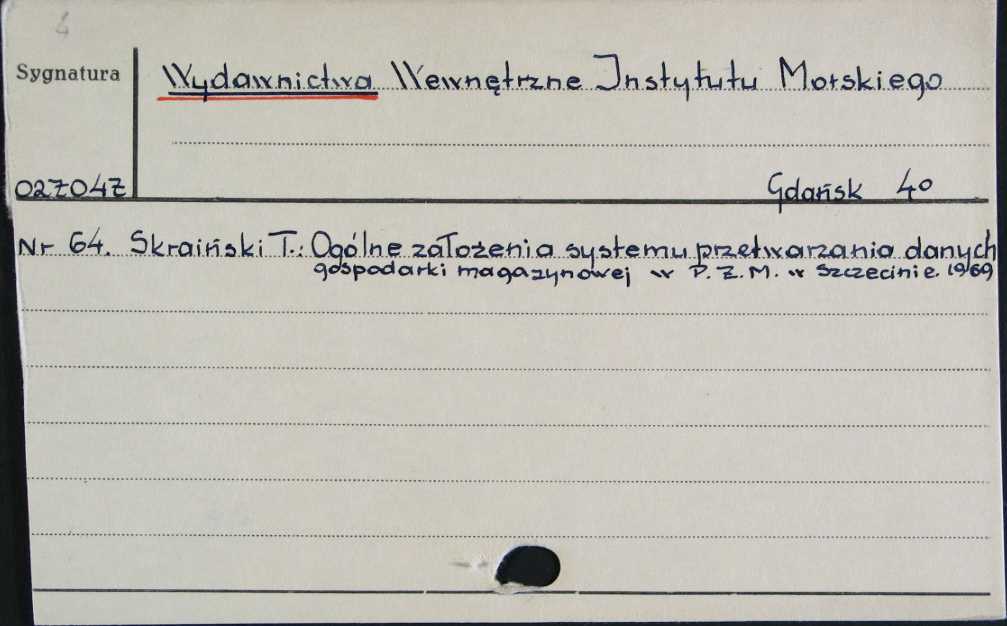 4
Sygnatura
Wydawnictwa Wewnętrzne Instytutu Morskiego
027047
Gdańsk 4°
Nr 64. Skraiński T.: Ogólne założenia systemu przetwarzania danych
gospodarki magazynowej w P.Z.M. w Szczecinie. 1969